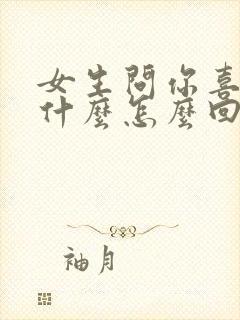 女生問你喜
什麼怎麼回
袖月